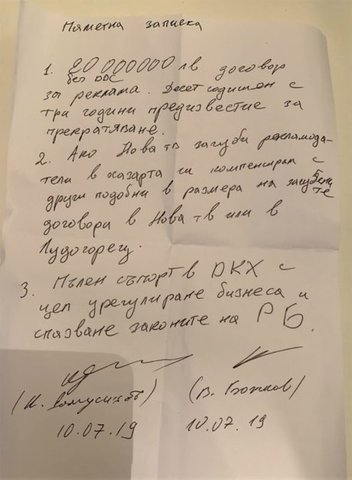 Паметна записка
1. 20 000000 лв договор
без ДДС
за реклама. Десет годишен с
три години предизвестие за
прекратяване.
2. Ако Нова тв загуби рекламода-
тели в хазарта ги компенсирам с
други подобни в размера на загубените
договора в Нова тв или в
Лудогорец.
3. Пълен съпорт в ДКХ с
цел урегулиране бизнеса и
спазване законите на РБ.
(К. Домусчиев) (В. Божков)
10.07.19 10.07.19